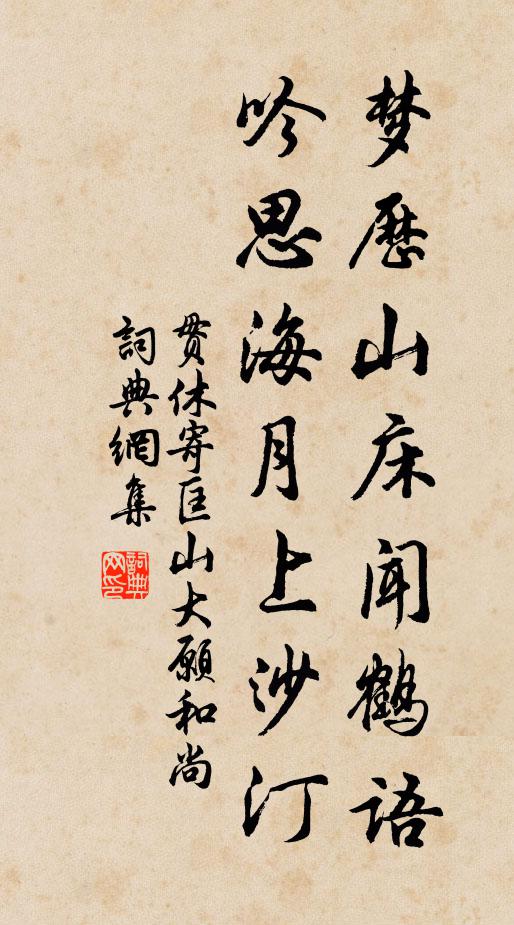 梦历山床闻鹤语
吟思海月上沙汀
贯休寄匡山大願和尚
詞典網集
詞典網印